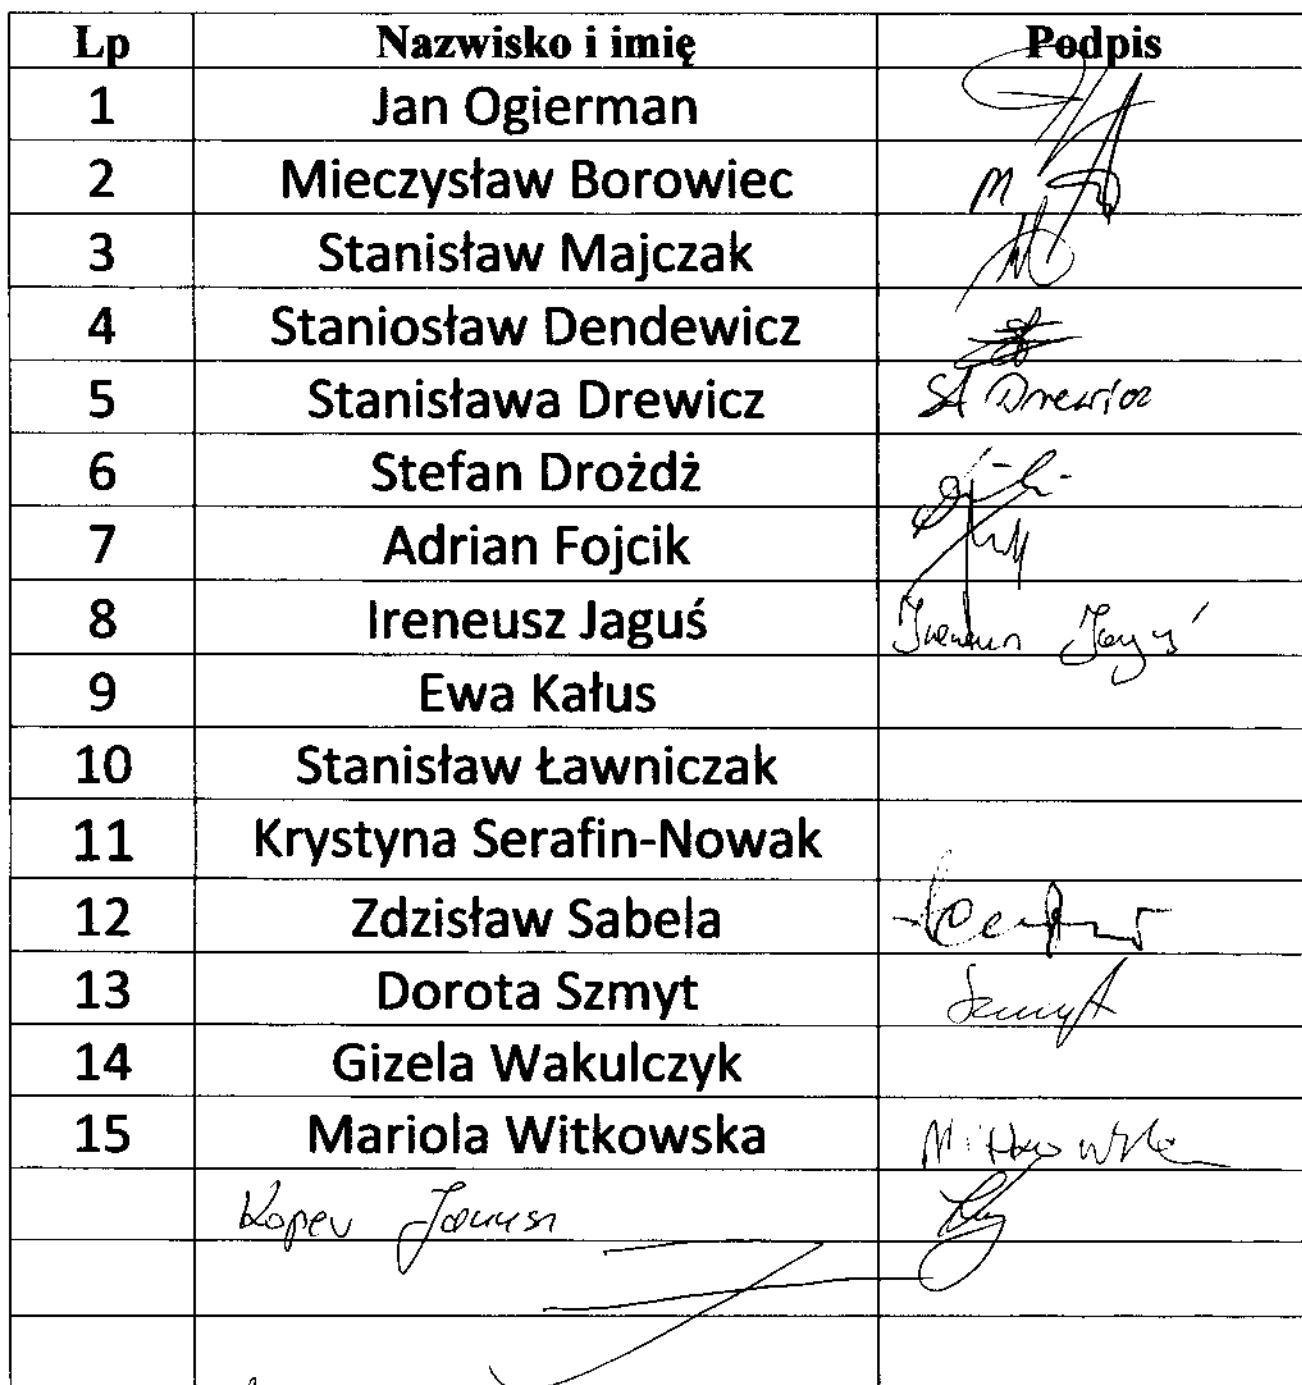 Lp Nazwisko i imię Podpis
1 Jan Ogierman
2 Mieczysław Borowiec M
3 Stanisław Majczak
4 Staniosław Dendewicz
5 Stanisława Drewicz St Drewicz
6 Stefan Drożdż
7 Adrian Fojcik
8 Ireneusz Jaguś Ireneusz Jaguś
9 Ewa Kałus
10 Stanisław Ławniczak
11 Krystyna Serafin-Nowak
12 Zdzisław Sabela
13 Dorota Szmyt Szmyt
14 Gizela Wakulczyk
15 Mariola Witkowska Witkowska
Janusz